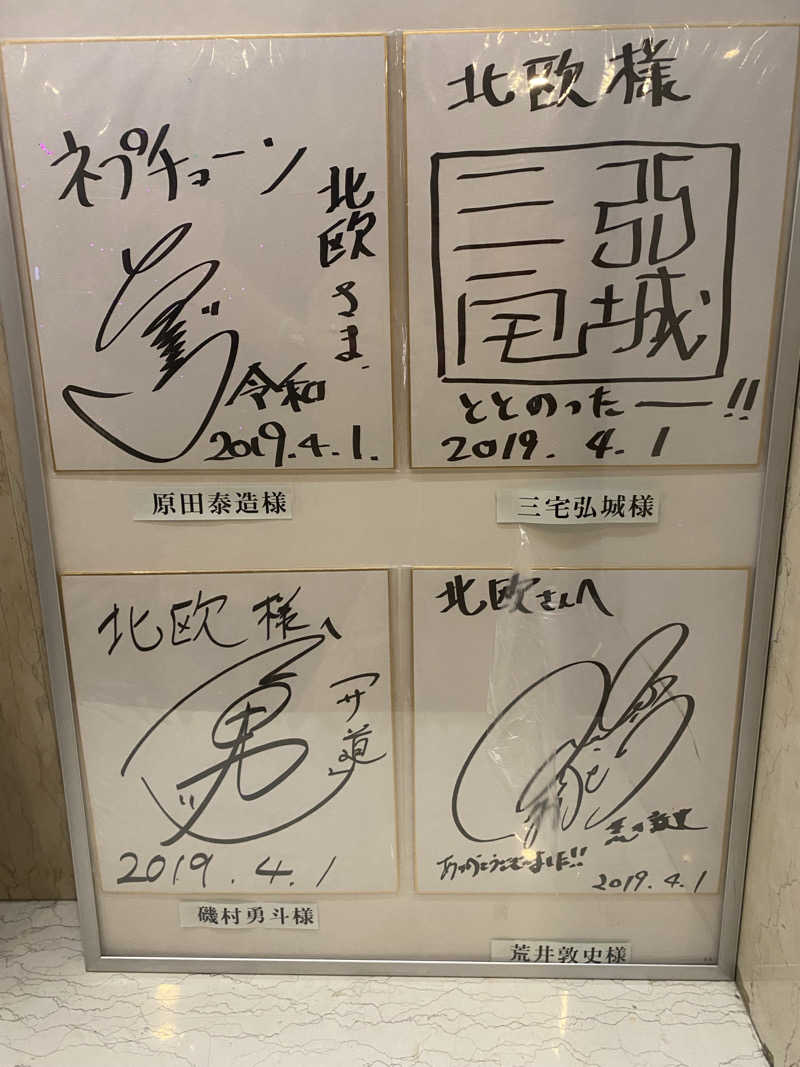 ネプチューン
北欧さま
令和
2019.4.1.
原田泰造様
北欧様
三宅
弘城
ととのったー!!
2019.4.1
三宅弘城様
北欧様へ
「サ道」
2019.4.1
磯村勇斗様
北欧さんへ
ありがとうございました!!
2019.4.1
荒井敦史様